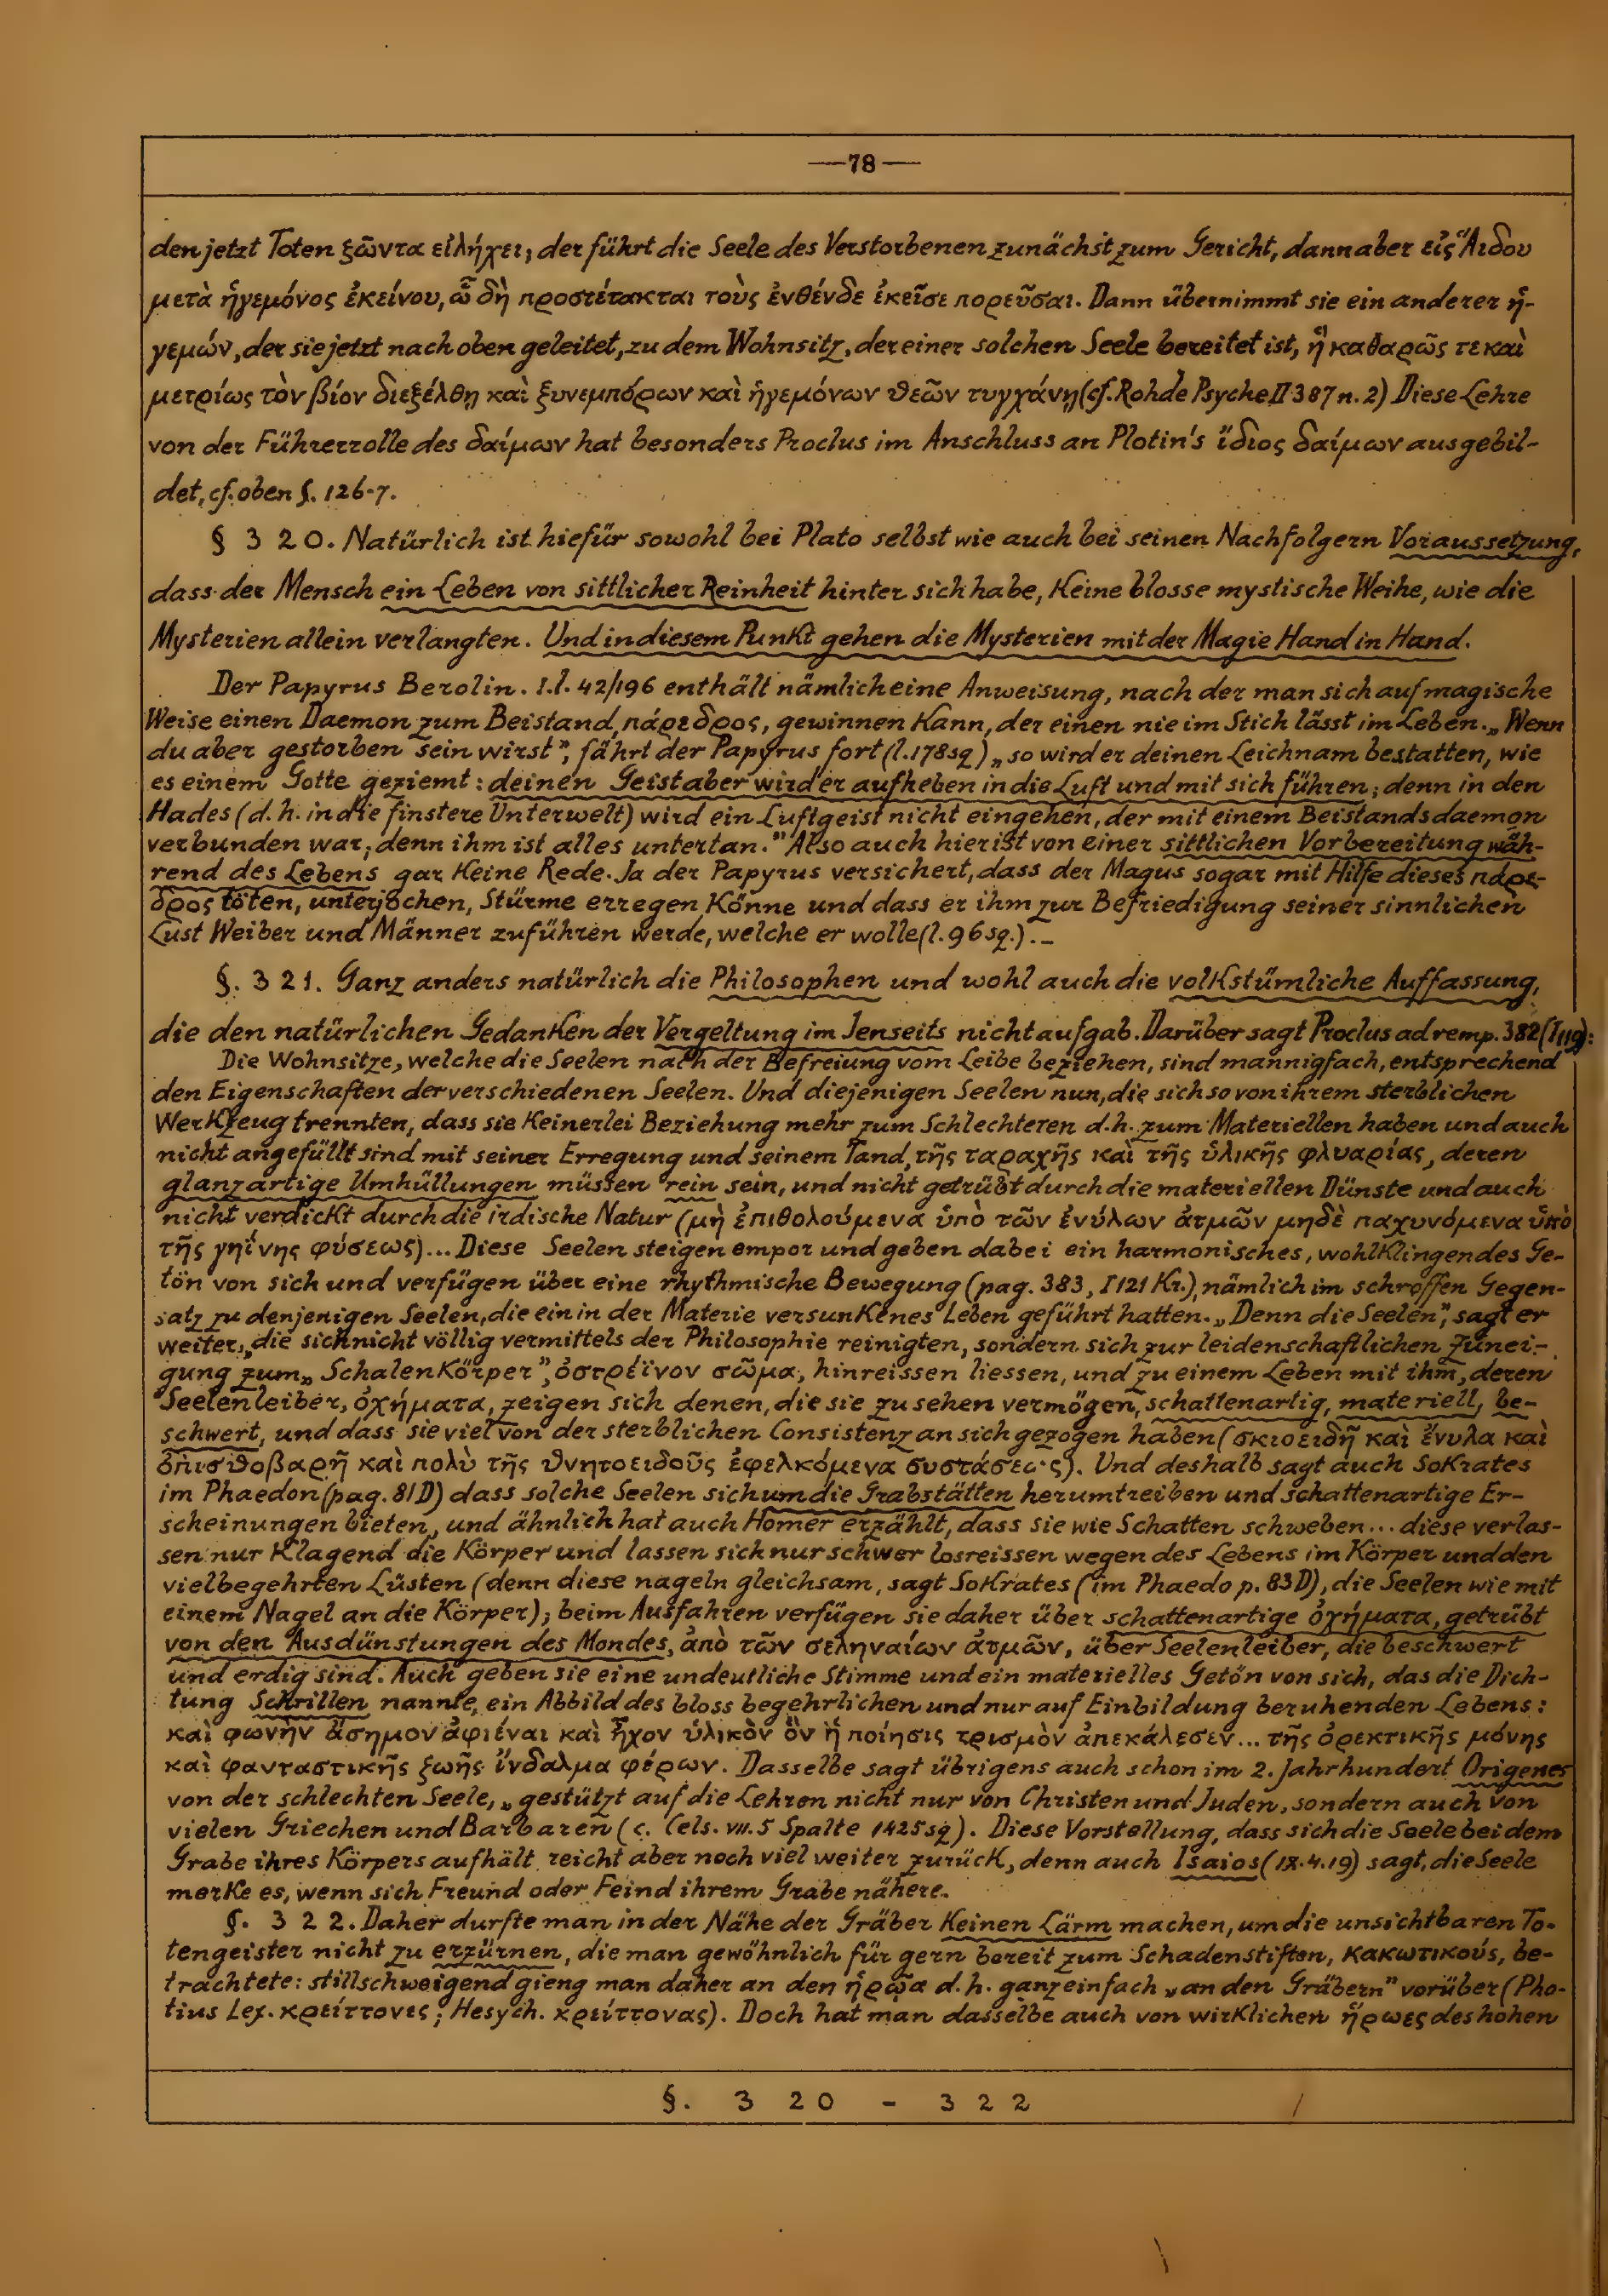 —78—
den jetzt Toten ξῶντα εἰλήχει, der führt die Seele des Verstorbenen zunächst zum Gericht, dann aber εἰς Ἅιδου
μετὰ ἡγεμόνος ἐκείνου, ᾧ δὴ προστέτακται τοὺς ἐνθένδε ἐκεῖσε πορεῦσαι. Dann übernimmt sie ein anderer ἡ-
γεμών, der sie jetzt nach oben geleitet, zu dem Wohnsitz, der einer solchen Seele bereitet ist, ἣ καθαρῶς τε καὶ
μετρίως τὸν βίον διεξέλθῃ καὶ ξυνεμπόρων καὶ ἡγεμόνων θεῶν τυγχάνῃ (cf. Rohde Psyche II 387 n. 2) Diese Lehre
von der Führerrolle des δαίμων hat besonders Proclus im Anschluss an Plotin's ἴδιος δαίμων ausgebil-
det, cf. oben §. 126-7.
§ 320. Natürlich ist hiefür sowohl bei Plato selbst wie auch bei seinen Nachfolgern Voraussetzung,
dass der Mensch ein Leben von sittlicher Reinheit hinter sich habe, Keine blosse mystische Weihe, wie die
Mysterien allein verlangten. Und in diesem Punkt gehen die Mysterien mit der Magie Hand in Hand.
Der Papyrus Berolin. I. l. 42/196 enthält nämlich eine Anweisung, nach der man sich auf magische
Weise einen Daemon zum Beistand, πάρεδρος, gewinnen Kann, der einen nie im Stich lässt im Leben. „Wenn
du aber gestorben sein wirst", fährt der Papyrus fort (l. 178 sq) „so wird er deinen Leichnam bestatten, wie
es einem Gotte geziemt: deinen Geist aber wird er aufheben in die Luft und mit sich führen; denn in den
Hades (d. h. in die finstere Unterwelt) wird ein Luftgeist nicht eingehen, der mit einem Beistandsdaemon
verbunden war; denn ihm ist alles untertan." Also auch hier ist von einer sittlichen Vorbereitung wäh-
rend des Lebens gar Keine Rede. Ja der Papyrus versichert, dass der Magus sogar mit Hilfe dieses πάρε-
δρος töten, unterjochen, Stürme erregen Könne und dass er ihm zur Befriedigung seiner sinnlichen
Lust Weiber und Männer zuführen werde, welche er wolle (l. 96 sq.). –
§. 321. Ganz anders natürlich die Philosophen und wohl auch die volkstümliche Auffassung,
die den natürlichen Gedanken der Vergeltung im Jenseits nicht aufgab. Darüber sagt Proclus ad remp. 382 (I 119):
Die Wohnsitze, welche die Seelen nach der Befreiung vom Leibe beziehen, sind mannigfach, entsprechend
den Eigenschaften der verschiedenen Seelen. Und diejenigen Seelen nun, die sich so von ihrem sterblichen
Werkzeug trennten, dass sie Keinerlei Beziehung mehr zum Schlechteren d. h. zum Materiellen haben und auch
nicht angefüllt sind mit seiner Erregung und seinem Tand, τῆς ταραχῆς καὶ τῆς ὑλικῆς φλυαρίας, deren
glanzartige Umhüllungen müssen rein sein, und nicht getrübt durch die materiellen Dünste und auch
nicht verdickt durch die irdische Natur (μὴ ἐπιθολούμενα ὑπὸ τῶν ἐνύλων ἀτμῶν μηδὲ παχυνόμενα ὑπὸ
τῆς γηΐνης φύσεως)... Diese Seelen steigen empor und geben dabei ein harmonisches, wohlklingendes Ge-
tön von sich und verfügen über eine rhythmische Bewegung (pag. 383, I 121 Kr.), nämlich im schroffen Gegen-
satz zu denjenigen Seelen, die ein in der Materie versunkenes Leben geführt hatten. „Denn die Seelen", sagt er
weiter, „die sich nicht völlig vermittels der Philosophie reinigten, sondern sich zur leidenschaftlichen Zunei-
gung zum „Schalenkörper", ὀστρέϊνον σῶμα, hinreissen liessen, und zu einem Leben mit ihm, deren
Seelenleiber, ὀχήματα, zeigen sich denen, die sie zu sehen vermögen, schattenartig, materiell, be-
schwert, und dass sie viel von der sterblichen Consistenz an sich gezogen haben (σκιοειδῆ καὶ ἔνυλα καὶ
ὀπισθοβαρῆ καὶ πολὺ τῆς θνητοειδοῦς ἐφελκόμενα συστάσεως). Und deshalb sagt auch Sokrates
im Phaedon (pag. 81 D) dass solche Seelen sich um die Grabstätten herumtreiben und schattenartige Er-
scheinungen bieten, und ähnlich hat auch Homer erzählt, dass sie wie Schatten schweben... diese verlas-
sen nur Klagend die Körper und lassen sich nur schwer losreissen wegen des Lebens im Körper und den
vielbegehrten Lüsten (denn diese nageln gleichsam, sagt Sokrates (im Phaedo p. 83 D), die Seelen wie mit
einem Nagel an die Körper); beim Ausfahren verfügen sie daher über schattenartige ὀχήματα, getrübt
von den Ausdünstungen des Mondes, ἀπὸ τῶν σεληναίων ἀτμῶν, über Seelenleiber, die beschwert
und erdig sind. Auch geben sie eine undeutliche Stimme und ein materielles Getön von sich, das die Dich-
tung Schrillen nannte, ein Abbild des bloss begehrlichen und nur auf Einbildung beruhenden Lebens:
καὶ φωνὴν ἄσημον ἀφιέναι καὶ ἦχον ὑλικὸν ὃν ἡ ποίησις τρισμὸν ἀπεκάλεσεν... τῆς ὀρεκτικῆς μόνης
καὶ φανταστικῆς ξωῆς ἴνδαλμα φέρων. Dasselbe sagt übrigens auch schon im 2. Jahrhundert Origenes
von der schlechten Seele, „gestützt auf die Lehren nicht nur von Christen und Juden, sondern auch von
vielen Griechen und Barbaren (c. Cels. VII. 5 Spalte 1425 sq). Diese Vorstellung, dass sich die Seele bei dem
Grabe ihres Körpers aufhält, reicht aber noch viel weiter zurück, denn auch Isaios (IX. 4. 19) sagt, die Seele
merke es, wenn sich Freund oder Feind ihrem Grabe nähere.
§. 322. Daher durfte man in der Nähe der Gräber Keinen Lärm machen, um die unsichtbaren To-
tengeister nicht zu erzürnen, die man gewöhnlich für gern bereit zum Schadenstiften, κακωτικούς, be-
trachtete: stillschweigend gieng man daher an den ἡρῷα d. h. ganz einfach „an den Gräbern" vorüber (Pho-
tius Lex. κρείττονες; Hesych. κρείττονας). Doch hat man dasselbe auch von wirklichen ἥρωες des hohen
§. 320 - 322